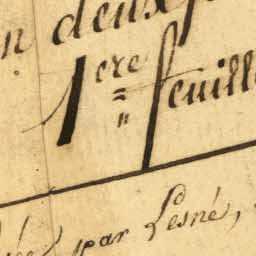 n deux f
1ere feuill
ée par Lesné,